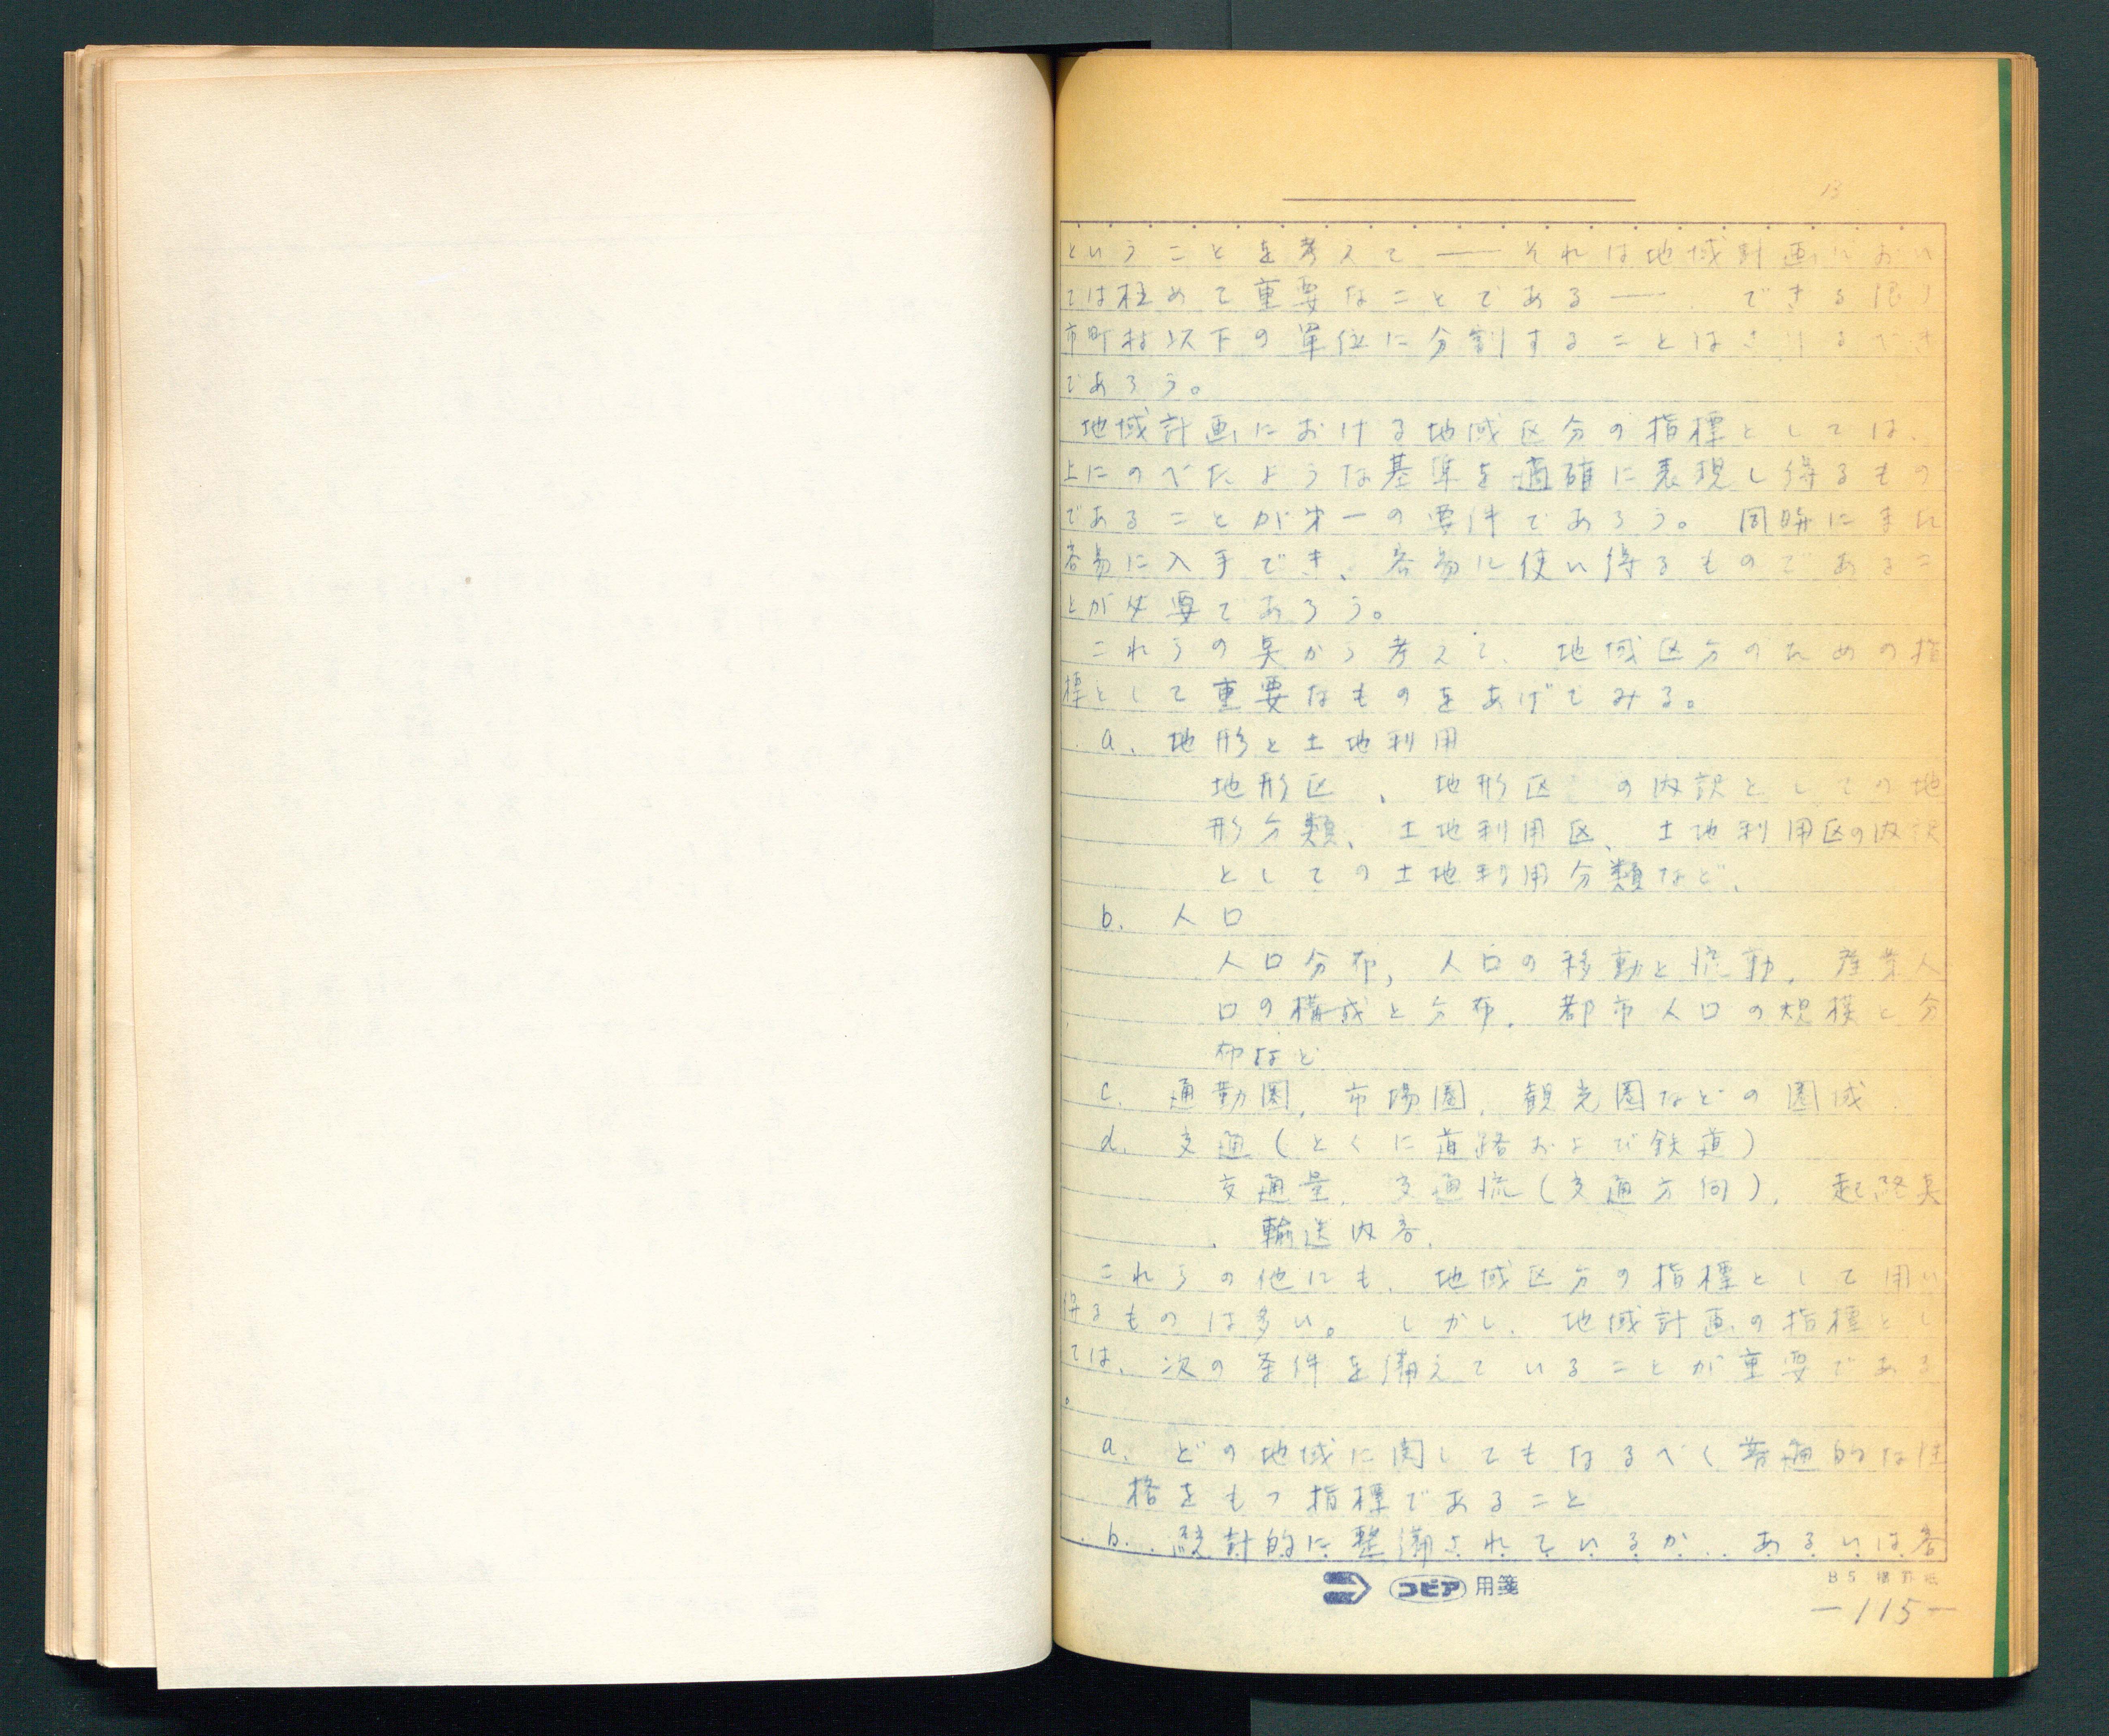 13
ということを考えて——それは地域計画におい
ては極めて重要なことである——、できる限り
市町村以下の単位に分割することはさけるべき
であろう。
地域計画における地域区分の指標としては、
上にのべたような基準を適確に表現し得るもの
であることが第一の要件であろう。同時にまた
容易に入手でき、容易に使い得るものであるこ
とが必要であろう。
これらの点から考えて、地域区分のための指
標として重要なものをあげてみる。
a. 地形と土地利用
地形区、地形区の内訳としての地
形分類、土地利用区、土地利用区の内訳
としての土地利用分類など、
b. 人口
人口分布, 人口の移動と流動, 産業人
口の構成と分布, 都市人口の規模と分
布など
c. 通勤圏, 市場圏, 観光圏などの圏域
d. 交通(とくに道路および鉄道)
交通量, 交通流(交通方向), 起終点
, 輸送内容,
これらの他にも、地域区分の指標として用い
得るものは多い。しかし、地域計画の指標とし
ては、次の条件を備えていることが重要である
。
a. どの地域に関してもなるべく普遍的な性
格をもつ指標であること
b. 統計的に整備されているか、あるいは容
コピア 用箋
B5 横罫紙
—115—